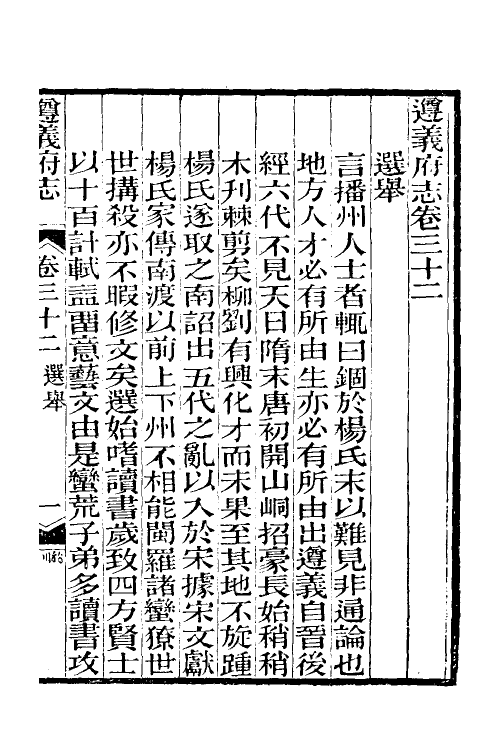 遵義府志卷三十二
選舉
言播州人士者輒曰錮於楊氏末以難見非通論也
地方人才必有所由生亦必有所由出遵義自晉後
經六代不見天日隋末唐初開山峒招豪長始稍稍
木刋棘剪矣柳劉有興化才而未果至其地不旋踵
楊氏遂取之南詔出五代之亂以入於宋據宋文獻
楊氏家傳南渡以前上下州不相能閩羅諸蠻獠世
世搆殺亦不暇修文矣選始嗜讀書歲致四方賢士
以十百計軾葢留意藝文由是蠻荒子弟多讀書攻
遵義府志
卷三十二 選舉
一